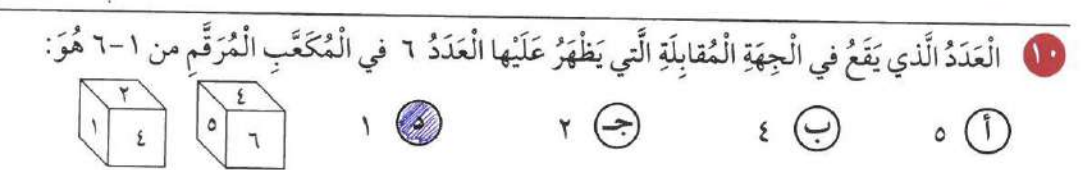 ١٠ الْعَدَدُ الَّذي يَقَعُ في الْجِهَةِ الْمُقابِلَةِ الَّتي يَظْهَرُ عَلَيْها الْعَدَدُ ٦ في الْمُكَعَّبِ الْمُرَقَّمِ من ١-٦ هُوَ:
أ ٥ ب ٤ جـ ٢ ١
٤ ٥ ٦
٢ ١ ٤